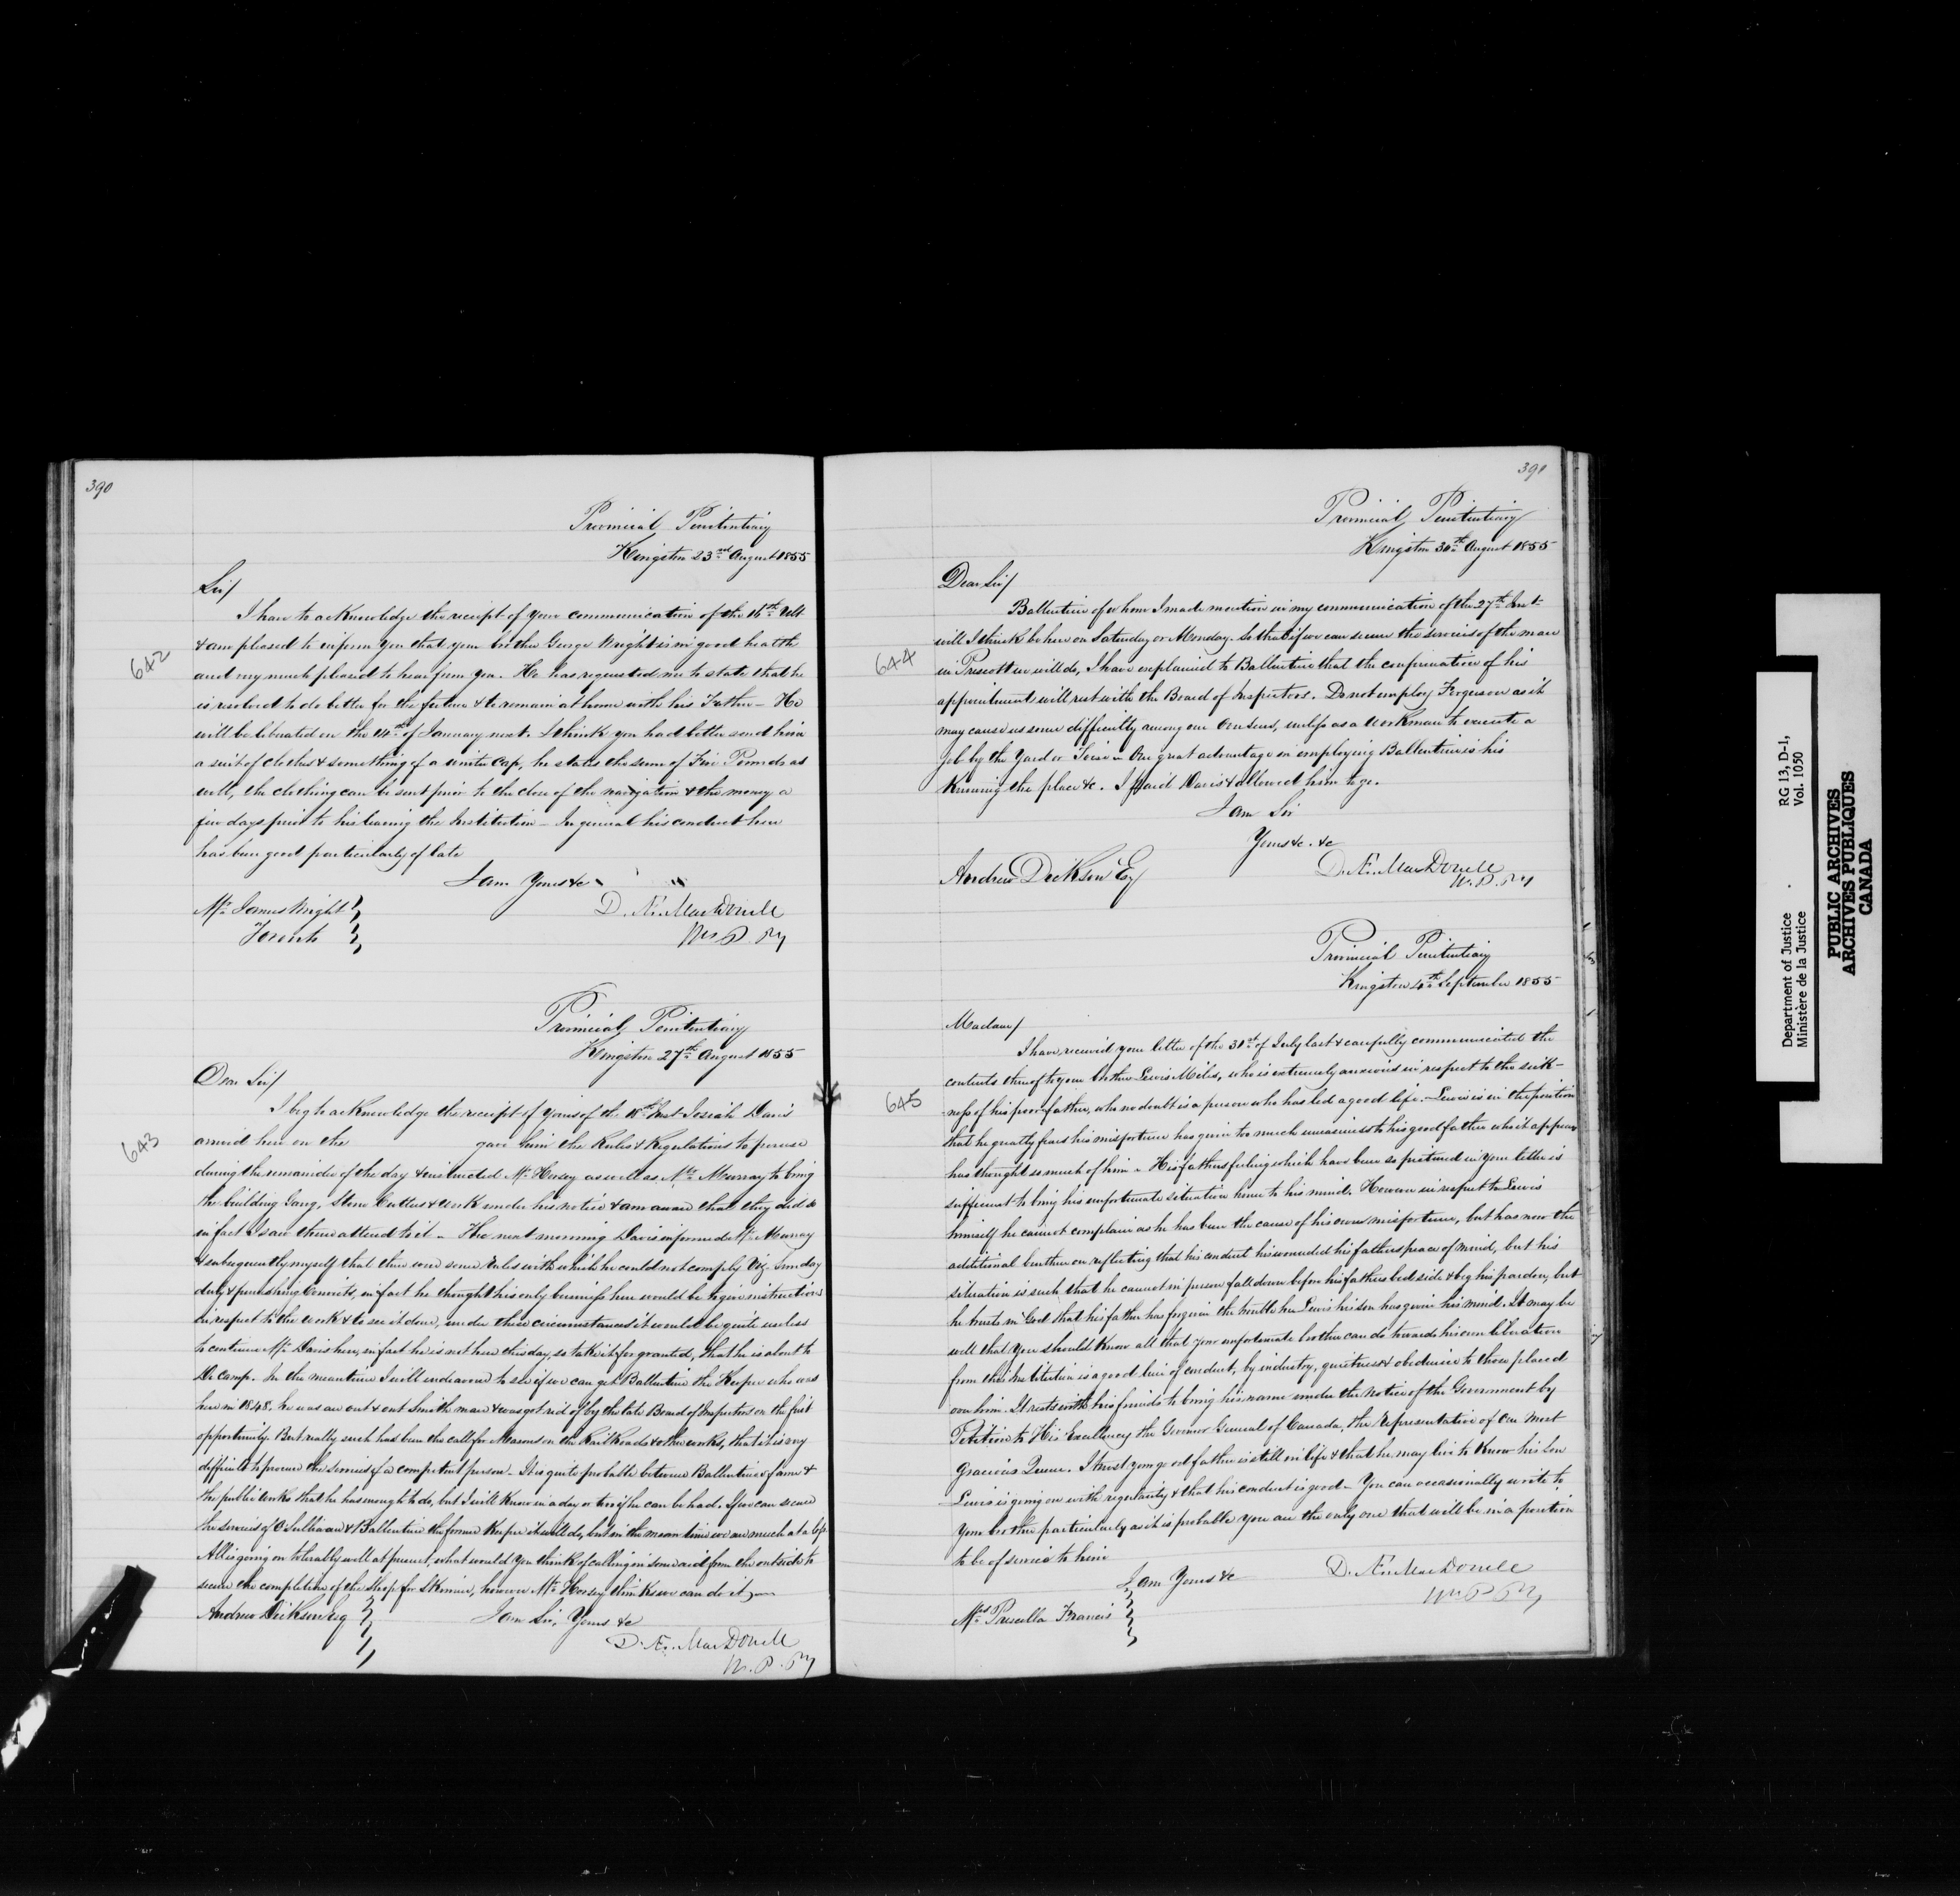 390
Provincial Penitentiary
Kingston 23rd August 1855
Sir/
I have to acknowledge the receipt of your communication of the 16th Ult
& am pleased to inform you that your brother George Wright is in good health
642
and very much pleased to hear from you. He has requested me to state that he
is resolved to do better for the future & to remain at home with his Father - He
will be liberated on the 14th of January next. I think you had better send him
a suit of clothes & something of a winter Cap, he states the sum of Five Pounds as
well, the clothing can be sent prior to the close of the navigation & the money a
few days prior to his leaving the Institution - In general his conduct here
has been good particularly of late
I am Yours &c
Mr. James Wright
Toronto
D. Æ. MacDonell
Wn P. Py
Provincial Penitentiary
Kingston 27th August 1855
Dear Sir/
I beg to acknowledge the receipt of yours of the 18th Inst Josiah Davis
643
arrived here on the gave him the Rules & Regulations to peruse
during the remainder of the day & instructed Mr. Horsey as well as Mr. Murray to bring
the building Gang, Stone Cutters & work under his notice & am aware that they did so
in fact I saw them attend to it - The next morning Davis informed Mr. Murray
& subsequently myself that there were some rules with which he could not comply Viz. Sunday
duty & punishing Convicts, in fact he thought his only business here would be to give instructions
in respect to the work & to see it done, under these circumstances it would be quite useless
to continue Mr. Davis here, in fact he is not here this day, so take it for granted, that he is about to
De camp. In the meantime I will endeavored to see if we can get Ballentine the Keeper who was
here in 1848. he was an out & out Smith man & was got rid of by the late Board of Inspectors on the first
opportunity. But really such has been the call for Masons on the Rail Roads & other works, that it is very
difficult to procure the services of a competent person - It is quite probable between Ballentine's farm &
the public works that he has enough to do, but I will know in a day or two if he can be had. If we can secure
the services of O'Sullivan & Ballentine the former Keeper it will do, but in the mean time we are much at a loss
All is going on tolerably well at present, what would you think of calling in some aid from the outside to
secure the completion of the Shop for Skinner, however Mr. Horsey thinks we can do it
Andrew Dickson Esq
I am Sir, Yours &c
D. Æ. MacDonell
W. P. Py
391
Provincial Penitentiary
Kingston 30th August 1855
Dear Sir/
Ballentine of whom I made mention in my communication of the 27th Inst
will I think be here on Saturday or Monday. So that if we can secure the services of the man
644
in Prescott we will do, I have explained to Ballentine that the confirmation of his
appointment will rest with the Board of Inspectors. Do not employ Ferguson as it
may cause us some difficulty among our Overseers, unless as a workman to execute a
Job by the Yard or Toise - One great advantage in employing Ballentine is his
Knowing the place &c. I paid Davis & allowed him to go.
I am Sir
Yours &c. &c
Andrew Dickson Esq
D. Æ. MacDonell
W. P. Py
Provincial Penitentiary
Kingston 4th September 1855
Madam/
I have received your letter of the 31st of July last & carefully communicated the
contents thereof to your brother Lewis Miles, who is extremely anxious in respect to the sick-
645
ness of his poor father, who no doubt is a person who has led a good life. - Lewis is in the position
that he greatly fears his misfortune has given too much uneasiness to his good father who it appears
has thought so much of him - His fathers feelings which have been so pictured in your letter is
sufficient to bring his unfortunate situation home to his mind. However in respect to Lewis
himself he cannot complain as he has been the cause of his own misfortune, but has now the
additional burthen on reflecting that his conduct has wounded his fathers peace of mind, but his
situation is such that he cannot in person fall down before his fathers bed side & beg his pardon, but
he trusts in God that his father has forgiven the trouble he Lewis his son has given his mind. It may be
well that you should know all that your unfortunate brother can do towards his own liberation
from this Institution is a good line of conduct, by industry, quietness & obedience to those placed
over him. It rests with his friends to bring his name under the notice of the Government by
Petition to His Excellency the Governor General of Canada, the representative of Our Most
Gracious Queen. I trust your good father is still in life & that he may live to Know his Son
Lewis is going on with regularity & that his conduct is good - You can occasionally write to
your brother particularly as it is probable you are the only one that will be in a position
to be of service to him
I am Yours &c
Mrs. Prescilla Francis
D. Æ. MacDonell
Wn P Py
RG 13, D-1,
Vol. 1050
Department of Justice
Ministère de la Justice
PUBLIC ARCHIVES
ARCHIVES PUBLIQUES
CANADA